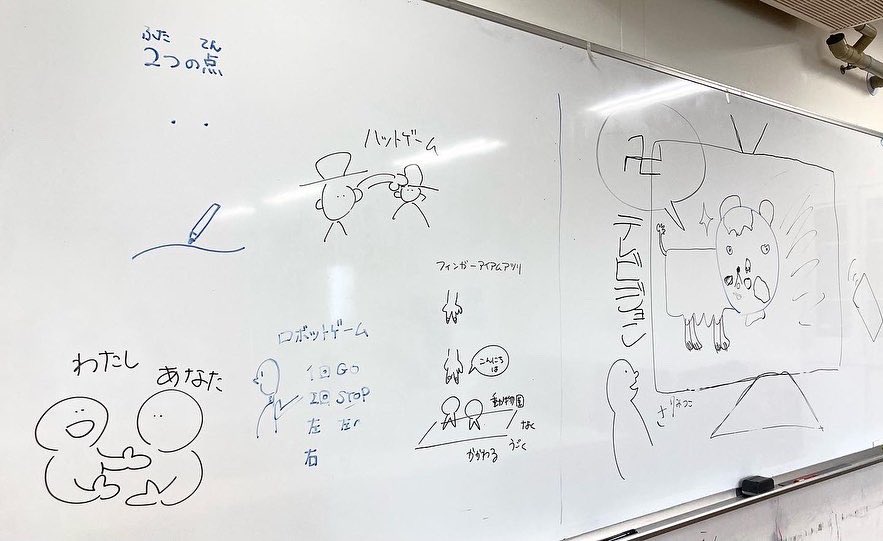 ふた てん
2つの点
ハットゲーム
わたし
あなた
ロボットゲーム
1回 GO
2回 STOP
左
右
フィンガーアイアムア
こんにち
は
動物園
なく
うごく
かかわる
卍
テレビジョン